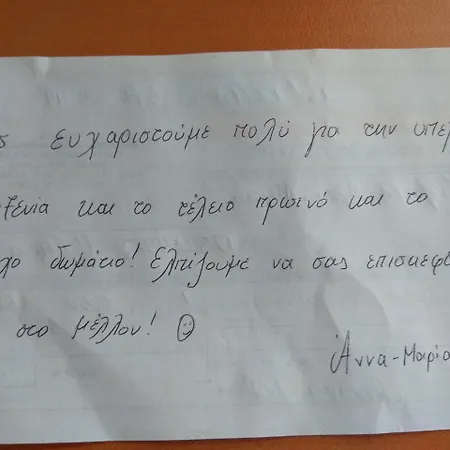 ς ευχαριστούμε πολύ για την υπέρ
οξενία και το τέλειο πρωινό και το
χο δωμάτιο! Ελπίζουμε να σας επισκεφ
στο μέλλον! ☺
Άννα-Μαρία